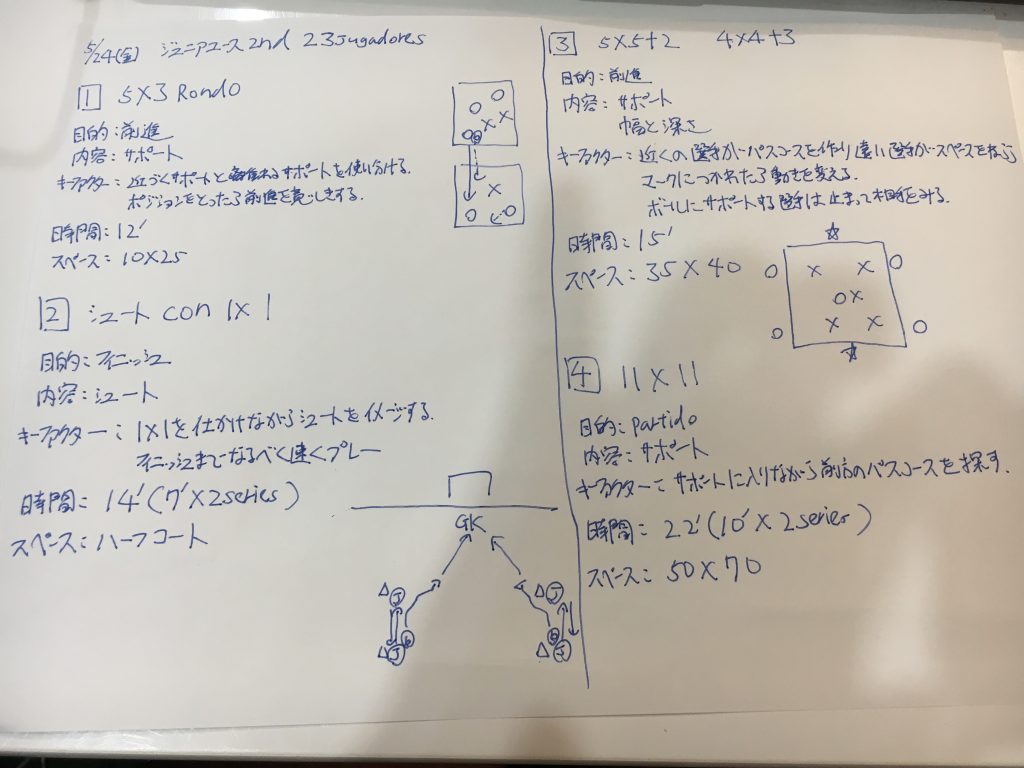 5/24(金) ジュニアユース 2nd 23 Jugadores
1 5×3 Rondo
目的：前進
内容：サポート
キーファクター：近づくサポートと離れるサポートを使い分ける。
ポジションをとったら前進を意しきする。
時間：12′
スペース：10×25
2 シュート con 1×1
目的：フィニッシュ
内容：シュート
キーファクター：1×1を仕かけながらシュートをイメージする。
フィニッシュまでなるべく速くプレー
時間：14′(7′×2series)
スペース：ハーフコート
GK
J
J
J
J
3 5×5+2 4×4+3
目的：前進
内容：サポート
幅と深さ
キーファクター：近くの選手がパスコースを作り遠い選手がスペースを
マークにつかれたら動きを変える。
ボールにサポートする選手は止まって相手をみる。
時間：15′
スペース：35×40
4 11×11
目的：partido
内容：サポート
キーファクター：サポートに入りながら前方のパスコースを探す.
時間：22′(10′×2series)
スペース：50×70